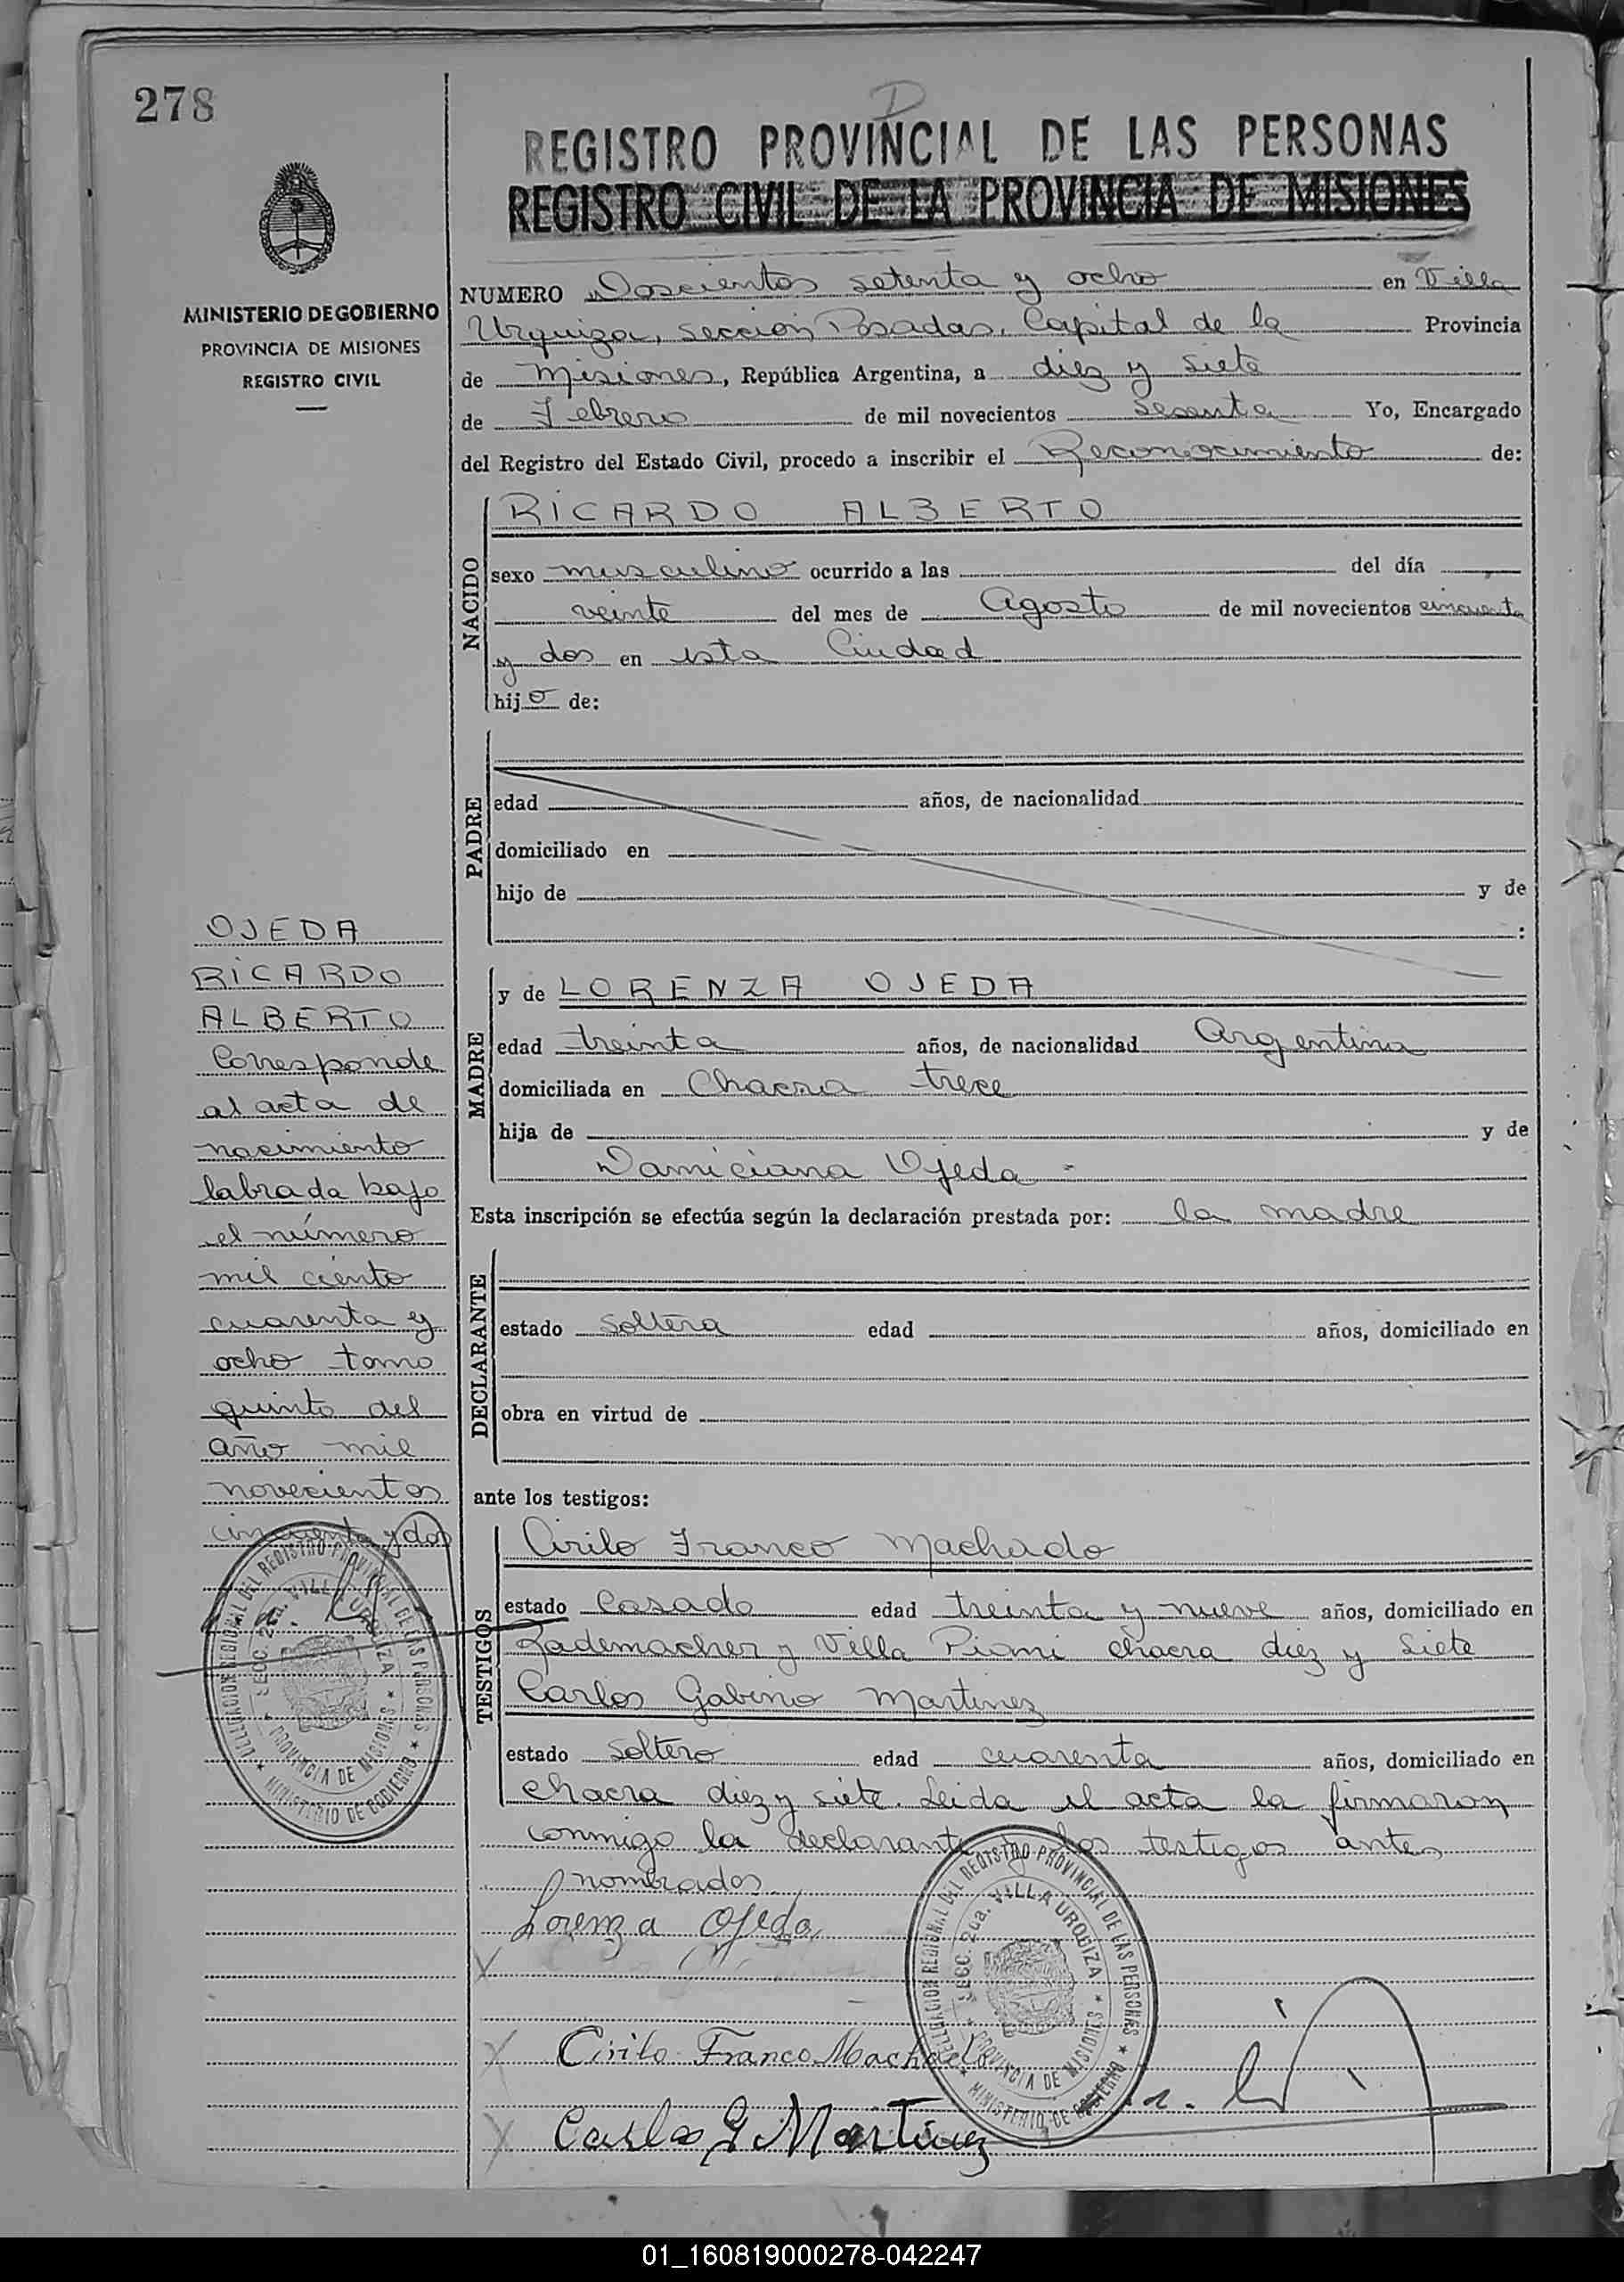 278
D
REGISTRO PROVINCIAL DE LAS PERSONAS
REGISTRO CIVIL DE LA PROVINCIA DE MISIONES
MINISTERIO DE GOBIERNO
PROVINCIA DE MISIONES
REGISTRO CIVIL
NUMERO Doscientos setenta y ocho en Villa
Urquiza, sección Posadas, Capital de la Provincia
de Misiones, República Argentina, a diez y siete
de Febrero de mil novecientos sesenta Yo, Encargado
del Registro del Estado Civil, procedo a inscribir el Reconocimiento de:
NACIDO
RICARDO ALBERTO
sexo masculino ocurrido a las del día
veinte del mes de Agosto de mil novecientos cincuenta
y dos en esta Ciudad
hijo de:
PADRE
edad años, de nacionalidad
domiciliado en
hijo de y de
:
MADRE
y de LORENZA OJEDA
edad treinta años, de nacionalidad Argentina
domiciliada en Chacra trece
hija de y de
Damiciana Ojeda
Esta inscripción se efectúa según la declaración prestada por: la madre
DECLARANTE
estado soltera edad años, domiciliado en
obra en virtud de
ante los testigos:
TESTIGOS
Cirilo Franco Machado
estado Casado edad treinta y nueve años, domiciliado en
Rademacher y Villa Piomi chacra diez y siete
Carlos Gabino Martinez
estado soltero edad cuarenta años, domiciliado en
chacra diez y siete. Leida el acta la firmaron
conmigo la declarante y los testigos antes
nombrados
Lorenza Ojeda
Cirilo Franco Machado
Carlos G Martinez
OJEDA
RICARDO
ALBERTO
Corresponde
al acta de
nacimiento
labrada bajo
el número
mil ciento
cuarenta y
ocho tomo
quinto del
año mil
novecientos
cincuenta y dos
DELEGACION REGIONAL DEL REGISTRO PROVINCIAL DE LAS PERSONAS
SECC. 2da. VILLA URQUIZA
PROVINCIA DE MISIONES
MINISTERIO DE GOBIERNO
DELEGACION REGIONAL DEL REGISTRO PROVINCIAL DE LAS PERSONAS
SECC. 2da. VILLA URQUIZA
PROVINCIA DE MISIONES
MINISTERIO DE GOBIERNO
01_160819000278-042247